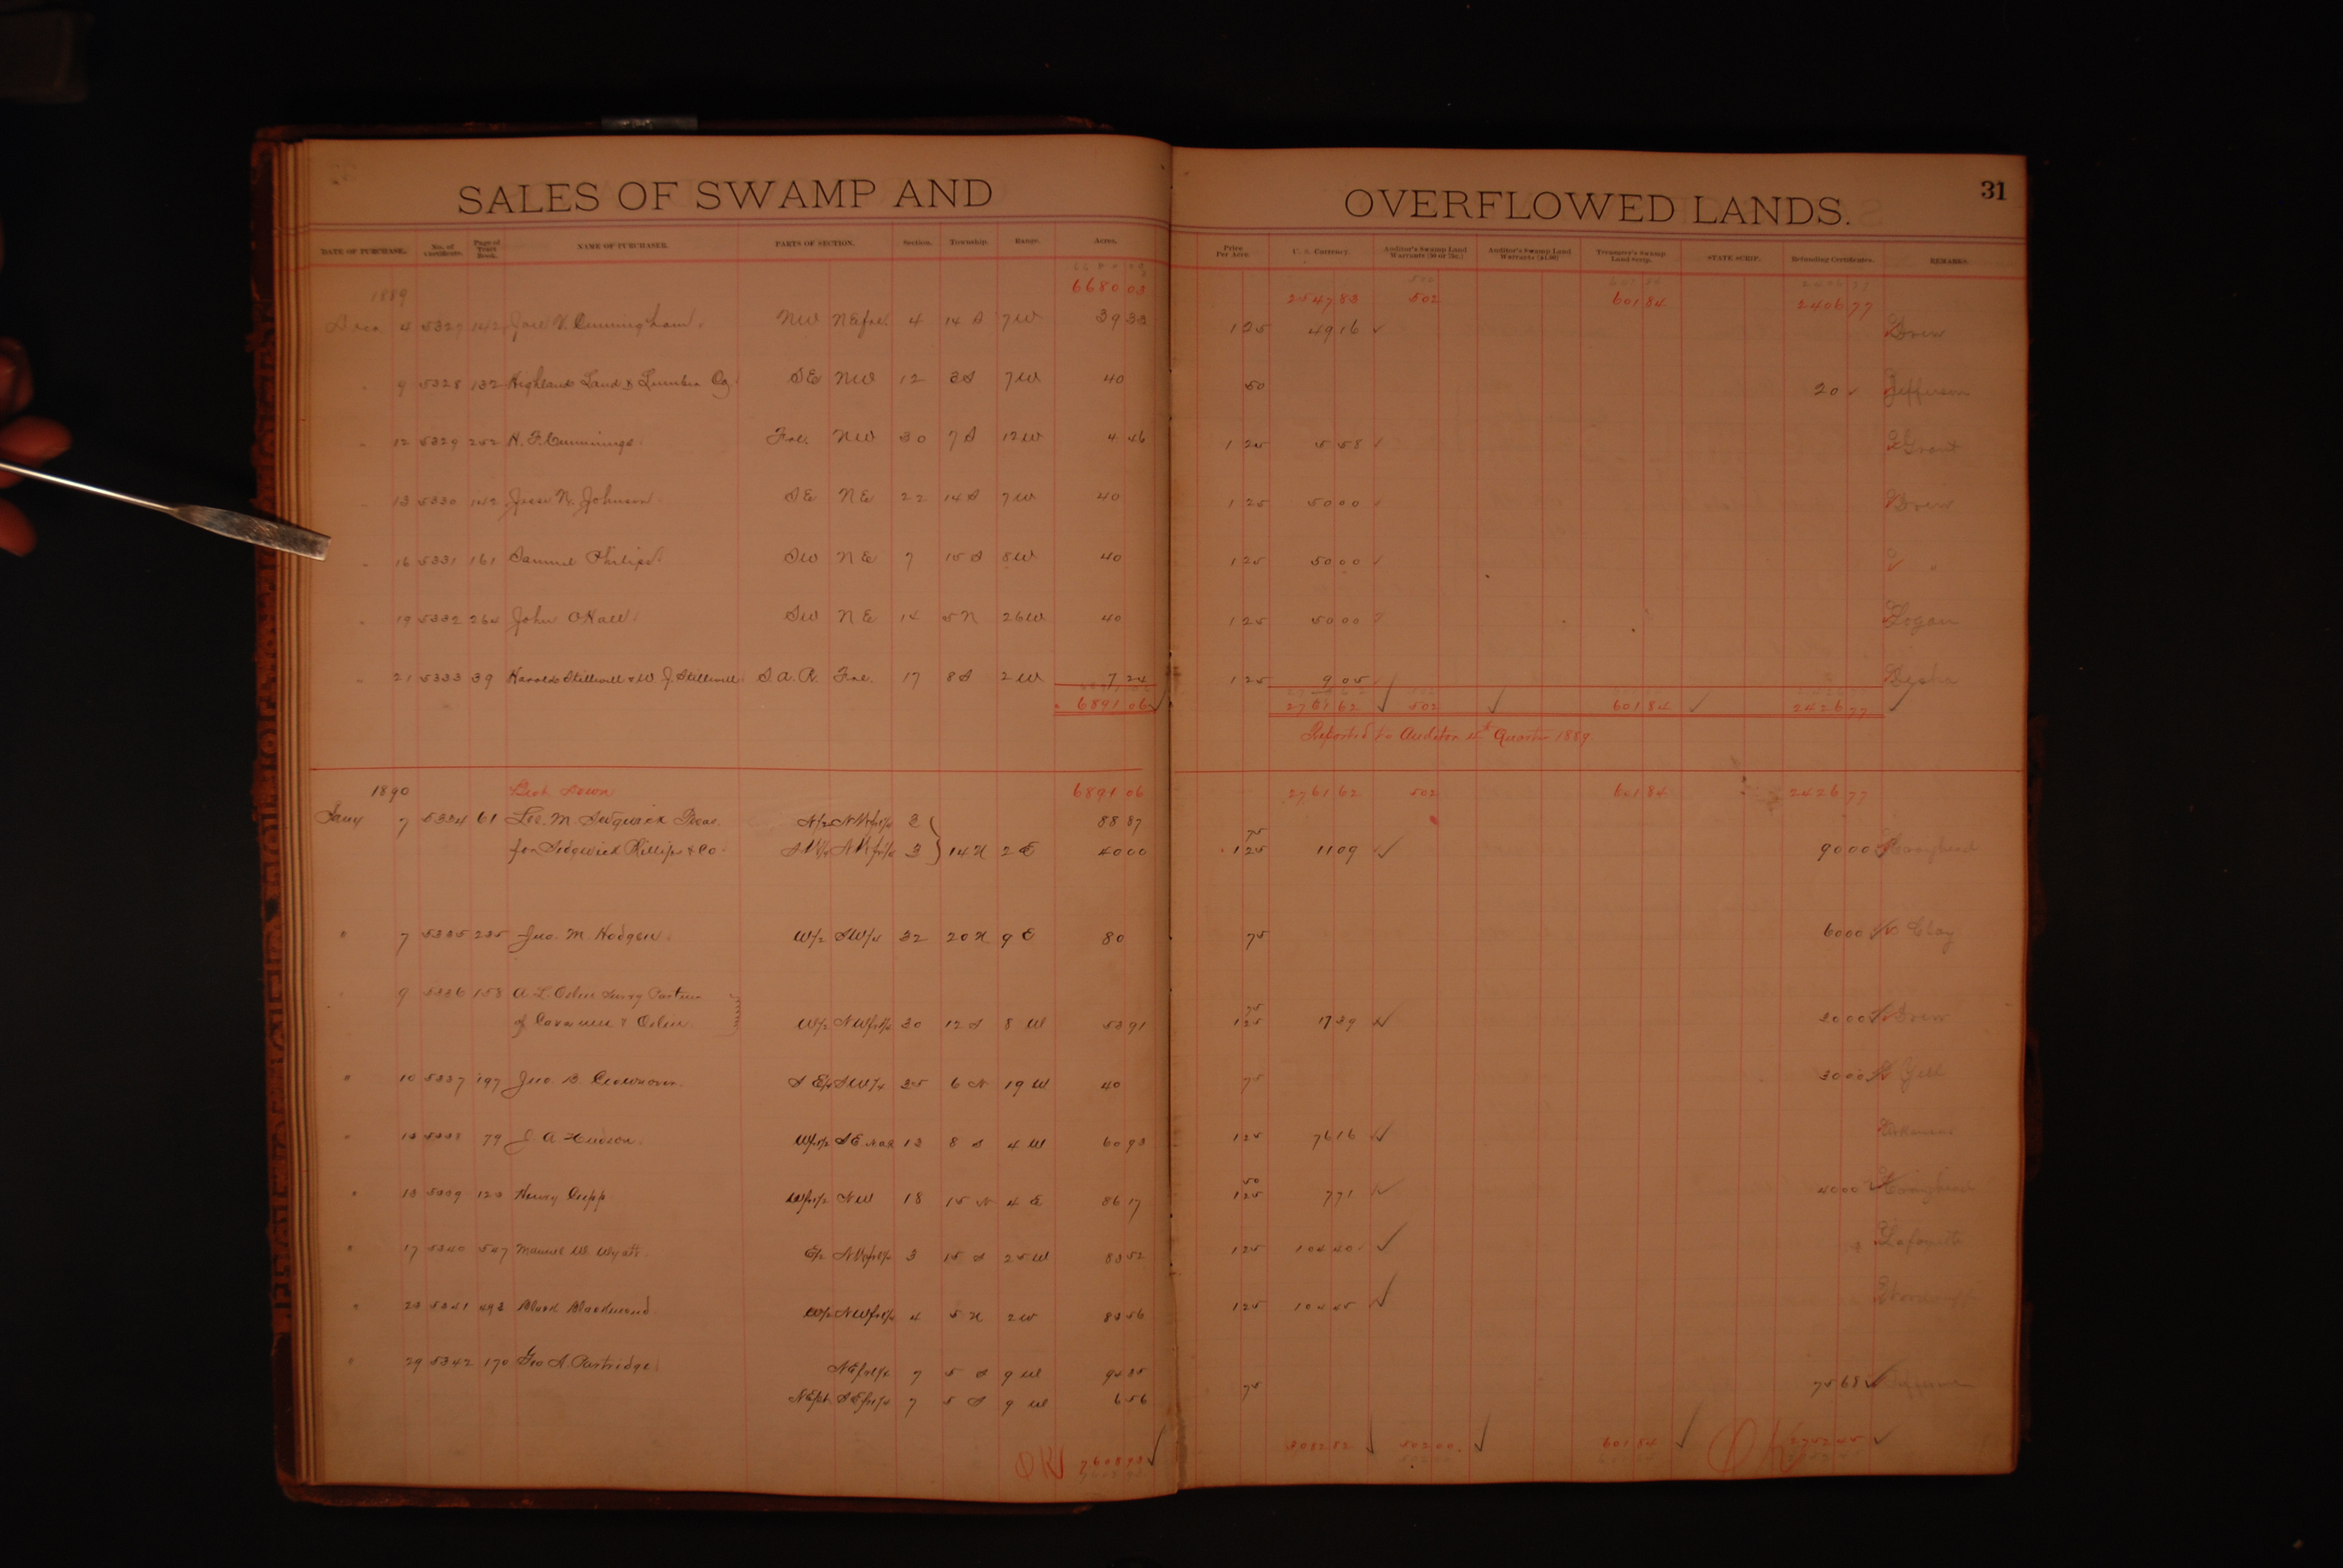 SALES OF SWAMP AND OVERFLOWED LANDS. 31
DATE OF PURCHASE. No. of Certificate. Page of Tract Book. NAME OF PURCHASER. PARTS OF SECTION. Section. Township. Range. Acres. Price Per Acre. U. S. Currency. Auditor's Swamp Land Warrants (50 or 75c.) Auditor's Swamp Land Warrants ($1.00) Treasurer's Swamp Land Scrip. STATE SCRIP. Refunding Certificates. REMARKS.
1889 6680 03 2547 83 502 601 84 2406 77
4 5327 142 V. Cunningham. NW NE frl. 4 14 S 7 W 39 33 1 25 49 16 Drew
" 9 5328 132 Highland Land & Lumber Co. SE NW 12 3 S 7 W 40 50 20 Jefferson
" 12 5329 252 H. F. Cummings. Frl. NW 30 7 S 12 W 4 46 1 25 5 58 Grant
" 13 5330 142 Jesse N. Johnson SE NE 22 14 S 7 W 40 1 25 50 00 Drew
" 16 5331 161 Samuel Philips. SW NE 7 15 S 8 W 40 1 25 50 00 "
" 19 5332 264 John O. Hall. SW NE 14 5 N 26 W 40 1 25 50 00 Logan
" 21 5333 39 Harold Stillwell & W. J. Stillwell. S. A. R. Frl. 17 8 S 2 W 7 24 1 25 9 05 Desha
6891 06 2761 62 502 601 84 2426 77
Reported to Auditor 4th Quarter 1889
1890 Brot Down 6891 06 2761 62 502 601 84 2426 77
Jany 7 5334 61 M. Sedgwick N/2 3 88 87 75
for Sedgwick Phillips & Co. 3 14 N 2 E 40 00 1 25 11 09 90 00 Craighead
" 7 5335 235 Jno. M. Hodgen. W/2 SW/4 32 20 N 9 E 80 75 60 00 Clay
9 5336 158 A L Oslin Surv'g Partner 75
of & Oslin. W/2 NW frl/4 30 12 S 8 W 53 91 1 25 17 39 30 00 Drew
" 10 5337 197 Jno. B. Crownover. S E/4 SW/4 35 6 N 19 W 40 75 30 00 Yell
" 13 5338 79 J. A. Hudson. SE 13 8 S 4 W 60 93 1 25 76 16 Arkansas
" 13 5339 123 Henry Cupp. NW 18 15 N 4 E 86 17 50 1 25 7 71 40 00 Craighead
" 17 5340 547 Manuel W. Wyatt. E/2 3 15 S 25 W 83 52 1 25 104 40 Lafayette
" 23 5341 493 Blackwood. W/2 NW frl/4 4 5 N 2 W 83 56 1 25 104 45 Woodruff
" 29 5342 170 Geo A. Partridge. NE frl/4 7 5 S 9 W 94 35 75 75 68
NE pt SE frl/4 7 5 S 9 W 6 56
OK 7608 93 3082 82 502 00 601 84 OK 2752 45